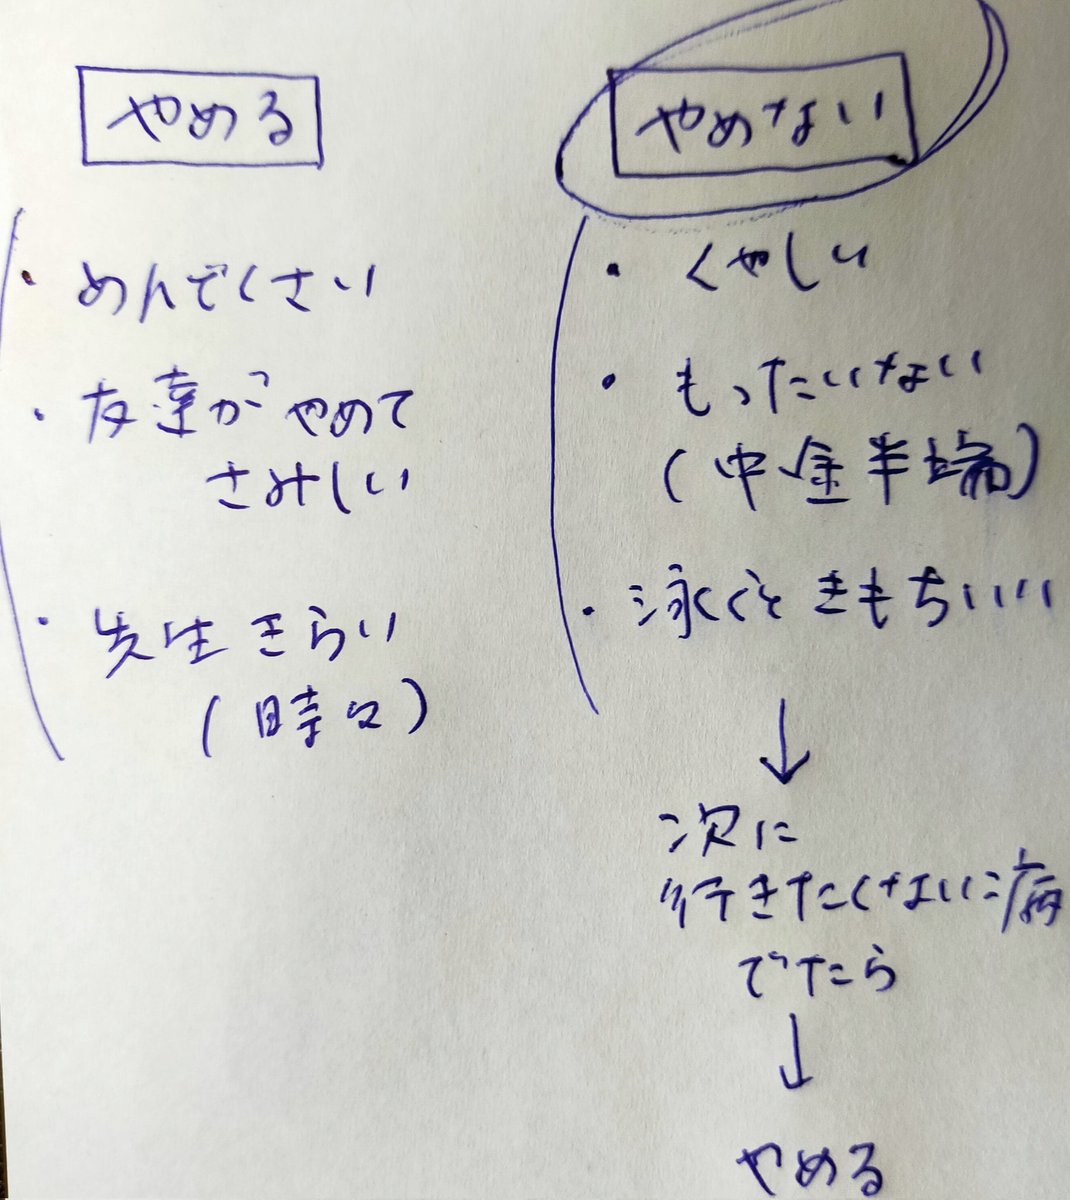 やめる
・めんでくさい
・友達がやめて
さみしい
・先生きらい
(時々)
やめない
・くやしい
・もったいない
(中途半端)
・泳ぐときもちいい
↓
次に
行きたくない病
でたら
↓
やめる